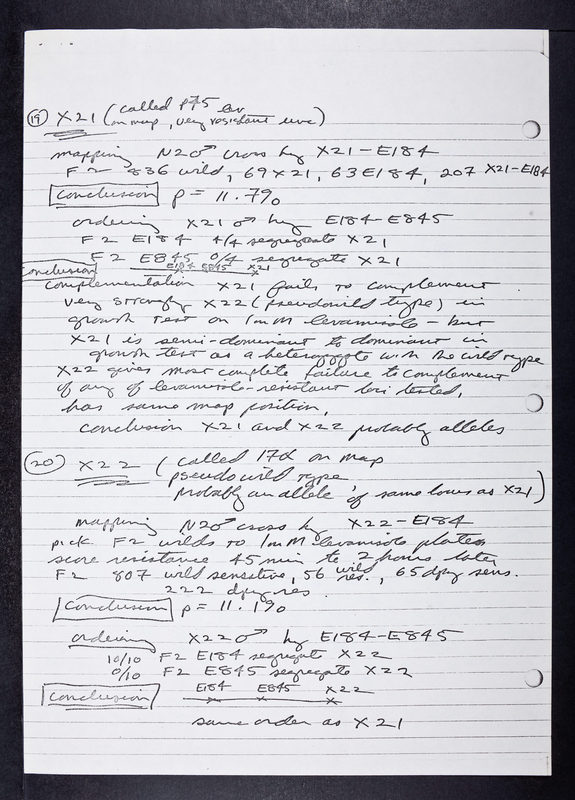 (19) X21 (called P45 lev
on map, very resistant unc)
mapping N2♂ cross by X21-E184
F2 836 wild, 69 X21, 63 E184, 207 X21-E184
Conclusion p = 11.7%
ordering X21 ♂ by E184-E845
F2 E184 4/4 segregate X21
F2 E845 0/4 segregate X21
Conclusion E184 E845 X21
complementation X21 fails to complement
very strongly X22 (pseudowild type) in
growth test on 1mM levamisole - but
X21 is semi-dominant to dominant in
growth test as a heterozygote with the wild type
X22 gives most complete failure to complement
of any of levamisole-resistant loci tested,
has same map position,
conclusion X21 and X22 probably alleles
(20) X22 (called 17α on map
pseudo wild type
probably an allele of same locus as X21)
mapping N2♂ cross by X22-E184
pick F2 wilds to 1mM levamisole plates
score resistance 45 min to 2 hours later
F2 807 wild sensitive, 56 wild res., 65 dpy sens.
222 dpy res.
Conclusion p = 11.1%
ordering X22♂ by E184-E845
10/10 F2 E184 segregate X22
0/10 F2 E845 segregate X22
Conclusion E184 E845 X22
same order as X21